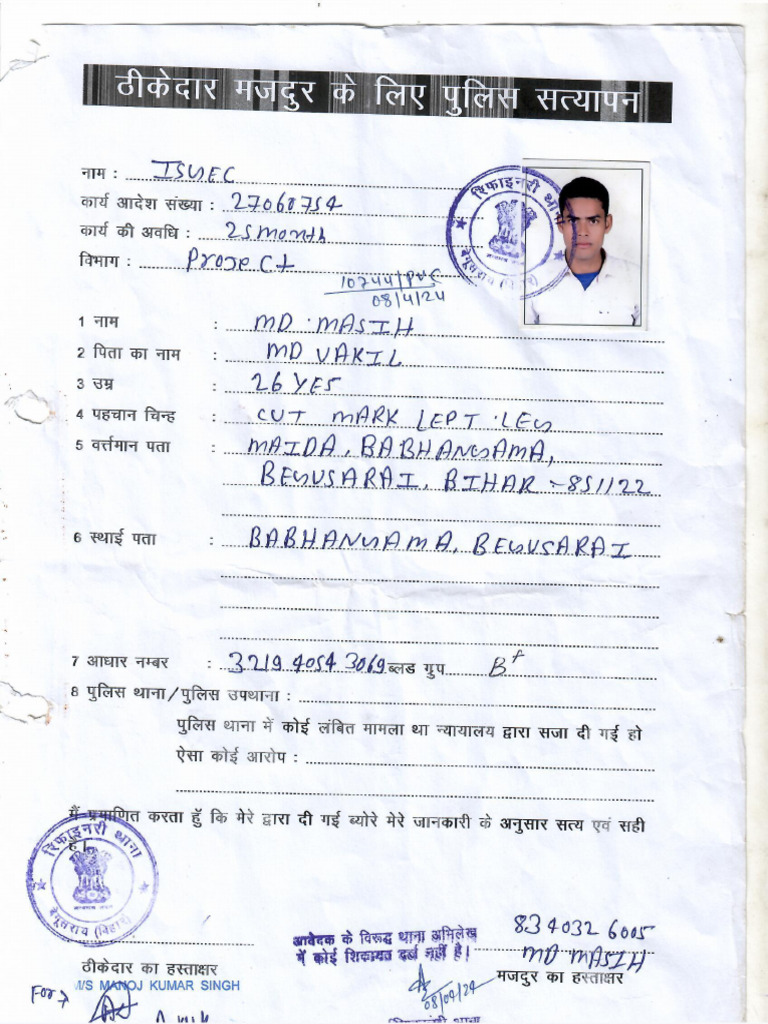 ठीकेदार मजदुर के लिए पुलिस सत्यापन
नाम : ISGEC
कार्य आदेश संख्या : 27060754
कार्य की अवधि : 25 month
विभाग : Project
10744/PVC
08/4/24
रिफाइनरी थाना
बेगूसराय (बिहार)
1 नाम : MD MASIH
2 पिता का नाम : MD VAKIL
3 उम्र : 26 YES
4 पहचान चिन्ह : CUT MARK LEPT LEG
5 वर्त्तमान पता : MAIDA, BABHANGAMA,
BEGUSARAI, BIHAR - 851122
6 स्थाई पता : BABHANGAMA, BEGUSARAI
7 आधार नम्बर : 3219 4054 3069 ब्लड ग्रुप B+
8 पुलिस थाना/पुलिस उपथाना :
पुलिस थाना में कोई लंबित मामला था न्यायालय द्वारा सजा दी गई हो
ऐसा कोई आरोप :
मैं प्रमाणित करता हुँ कि मेरे द्वारा दी गई ब्योरे मेरे जानकारी के अनुसार सत्य एवं सही
है।
रिफाइनरी थाना
बेगूसराय (बिहार)
आवेदक के विरूद्ध थाना अभिलेख
में कोई शिकायत दर्ज नहीं है।
8340326005
MD MASIH
ठीकेदार का हस्ताक्षर
मजदुर का हस्ताक्षर
For M/S MANOJ KUMAR SINGH
08/04/24